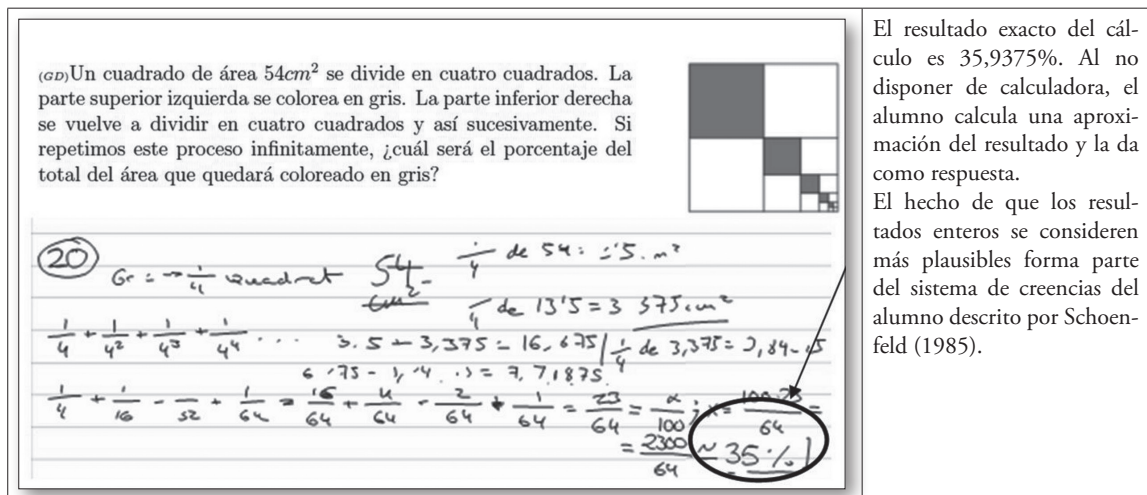 (GD)Un cuadrado de área 54cm² se divide en cuatro cuadrados. La
parte superior izquierda se colorea en gris. La parte inferior derecha
se vuelve a dividir en cuatro cuadrados y así sucesivamente. Si
repetimos este proceso infinitamente, ¿cuál será el porcentaje del
total del área que quedará coloreado en gris?
20
Gr = → 1/4 quadrat 54 cm²
1/4 de 54 =
1/4 de 13'5 = 3 375 cm²
1/4 + 1/4² + 1/4³ + 1/4⁴ ...
3,375 = 16,875 | 1/4 de 3,375 =
1/4 + 1/16 - /32 + 1/64 = 16/64 + 4/64 - 2/64 + 1/64 = 23/64 = x/100 ; x = 100·23/64 =
= 2300/64 ~ 35%
El resultado exacto del cál-
culo es 35,9375%. Al no
disponer de calculadora, el
alumno calcula una aproxi-
mación del resultado y la da
como respuesta.
El hecho de que los resul-
tados enteros se consideren
más plausibles forma parte
del sistema de creencias del
alumno descrito por Schoen-
feld (1985).